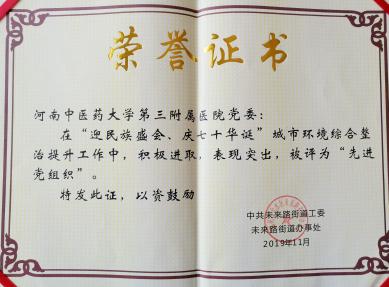 荣誉证书
河南中医药大学第三附属医院党委：
在“迎民族盛会、庆七十华诞”城市环境综合整
治提升工作中，积极进取，表现突出，被评为“先进
党组织”。
特发此证，以资鼓励
中共未来路街道工委
未来路街道办事处
2019年11月